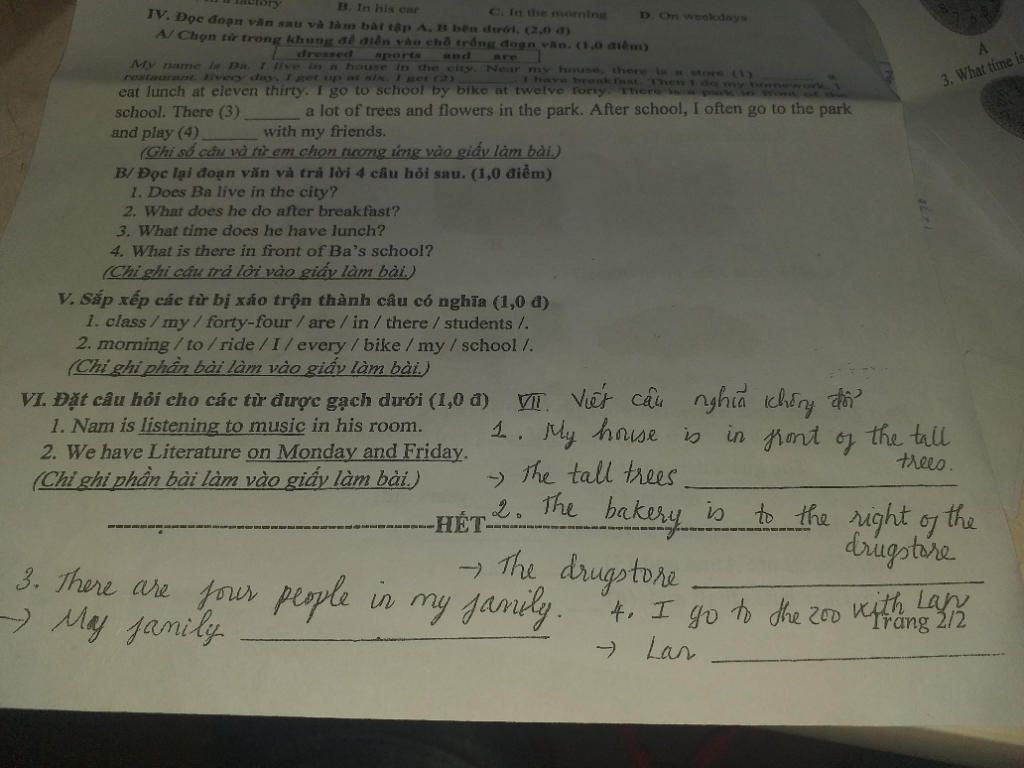 B. In his car C. In the morning D. On weekdays
IV. Đọc đoạn văn sau và làm bài tập A, B bên dưới. (2,0 đ)
A/ Chọn từ trong khung để điền vào chỗ trống đoạn văn. (1,0 điểm)
dressed sports and are
My name is Ba. I live in a house in the city. Near my house, there is a store (1) ______ a
restaurant. Every day, I get up at six. I get (2) ______. I have breakfast. Then I do my homework. I
eat lunch at eleven thirty. I go to school by bike at twelve forty. There is a park in front of the
school. There (3) ______ a lot of trees and flowers in the park. After school, I often go to the park
and play (4)______ with my friends.
(Ghi số câu và từ em chọn tương ứng vào giấy làm bài.)
B/ Đọc lại đoạn văn và trả lời 4 câu hỏi sau. (1,0 điểm)
1. Does Ba live in the city?
2. What does he do after breakfast?
3. What time does he have lunch?
4. What is there in front of Ba's school?
(Chỉ ghi câu trả lời vào giấy làm bài.)
V. Sắp xếp các từ bị xáo trộn thành câu có nghĩa (1,0 đ)
1. class / my / forty-four / are / in / there / students /.
2. morning / to / ride / I / every / bike / my / school /.
(Chỉ ghi phần bài làm vào giấy làm bài.)
VI. Đặt câu hỏi cho các từ được gạch dưới (1,0 đ)
1. Nam is listening to music in his room.
2. We have Literature on Monday and Friday.
(Chỉ ghi phần bài làm vào giấy làm bài.)
HẾT
VII. Viết câu nghĩa không đổi
1. My house is in front of the tall
trees.
→ The tall trees ______
2. The bakery is to the right of the
drugstore
→ The drugstore ______
3. There are four people in my family.
→ My family ______
4. I go to the zoo with Lan
→ Lan ______
Trang 2/2
A
3. What time is